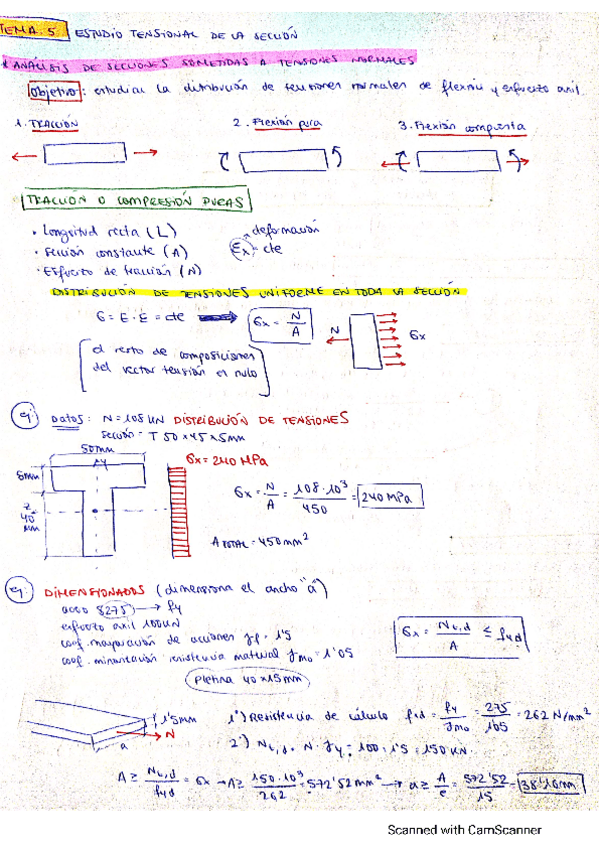 TEMA 5 ESTUDIO TENSIONAL DE LA SECCIÓN
* ANÁLISIS DE SECCIONES SOMETIDAS A TENSIONES NORMALES
Objetivo: estudiar la distribución de tensiones normales de flexión y esfuerzo axil.
1. TRACCIÓN 2. Flexión pura 3. Flexión compuesta
TRACCIÓN O COMPRESIÓN PURAS
· Longitud recta (L) deformación
· Sección constante (A) Ex = cte
· Esfuerzo de tracción (N)
DISTRIBUCIÓN DE TENSIONES UNIFORME EN TODA LA SECCIÓN
σ = E · ε = cte σx = N/A N σx
el resto de composiciones
del vector tensión es nulo
ej: DATOS: N = 108 kN DISTRIBUCIÓN DE TENSIONES
Sección = T 50 x 45 x 5mm
50mm
y σx = 240 MPa
5mm
σx = N/A = 108·10³/450 = 240 MPa
z
40
mm
A TOTAL = 450mm²
ej: DIMENSIONADOS (dimensiona el ancho "a")
acero S275 → fy
esfuerzo axil 100kN
coef. mayoración de acciones γf = 1'5
coef. minoración resistencia material γM0 = 1'05
σx = Nu,d/A ≤ fyd
Pletina 40 x 15mm
1'5mm
N
a
1º) Resistencia de cálculo fyd = fy/γM0 = 275/1'05 = 262 N/mm²
2º) Nu,d = N · γf = 100 · 1'5 = 150 kN.
A ≥ Nu,d/fyd = σx → A ≥ 150·10³/262 = 572'52mm² → a ≥ A/e = 572'52/15 = 38'16mm
Scanned with CamScanner